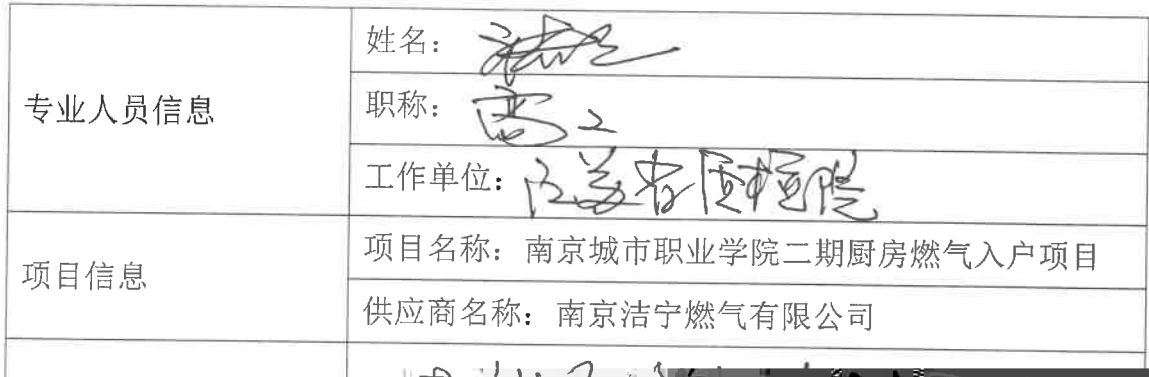 专业人员信息
姓名：
职称：高工
工作单位：江苏省质检院
项目信息
项目名称：南京城市职业学院二期厨房燃气入户项目
供应商名称：南京洁宁燃气有限公司